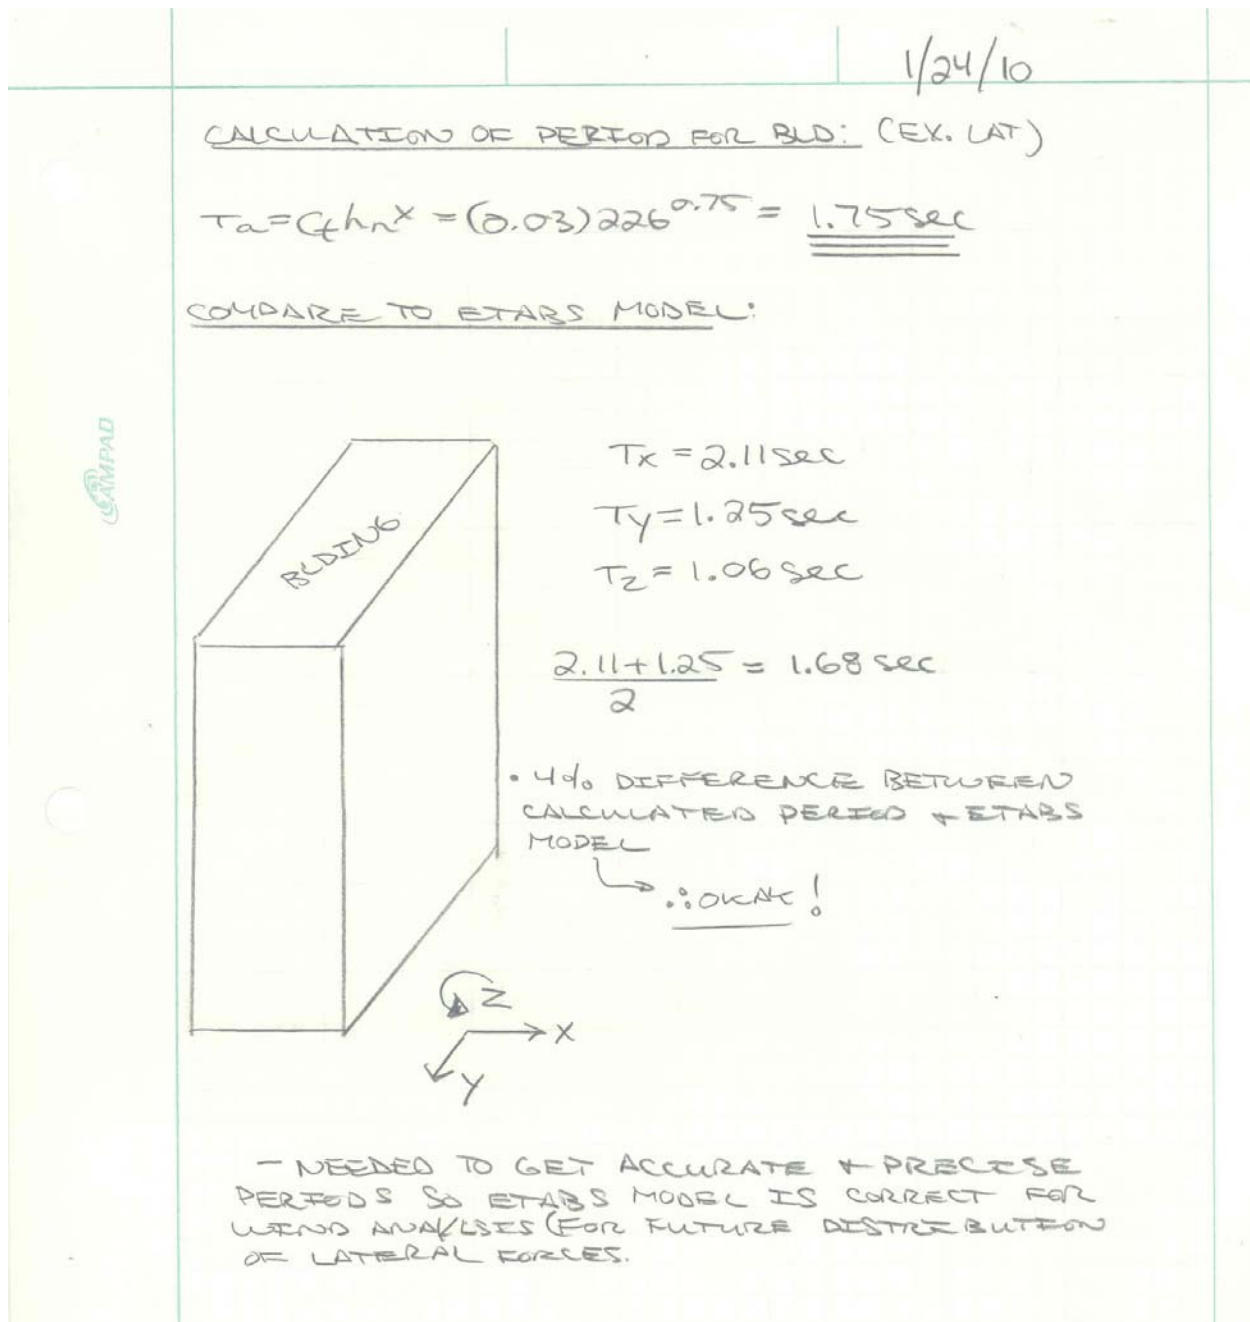 1/24/10
CALCULATION OF PERIOD FOR BLD: (EX. LAT)
Ta=Cthn^x = (0.03)226^0.75 = 1.75 sec
COMPARE TO ETABS MODEL:
CAMPAD
BLDING
Tx = 2.11 sec
Ty = 1.25 sec
Tz = 1.06 sec
2.11+1.25 = 1.68 sec
2
• 4% DIFFERENCE BETWEEN
CALCULATED PERIOD + ETABS
MODEL
∴ OKAY!
Z
X
Y
- NEEDED TO GET ACCURATE + PRECISE
PERIODS SO ETABS MODEL IS CORRECT FOR
WIND ANALYSIS (FOR FUTURE DISTRIBUTION
OF LATERAL FORCES.